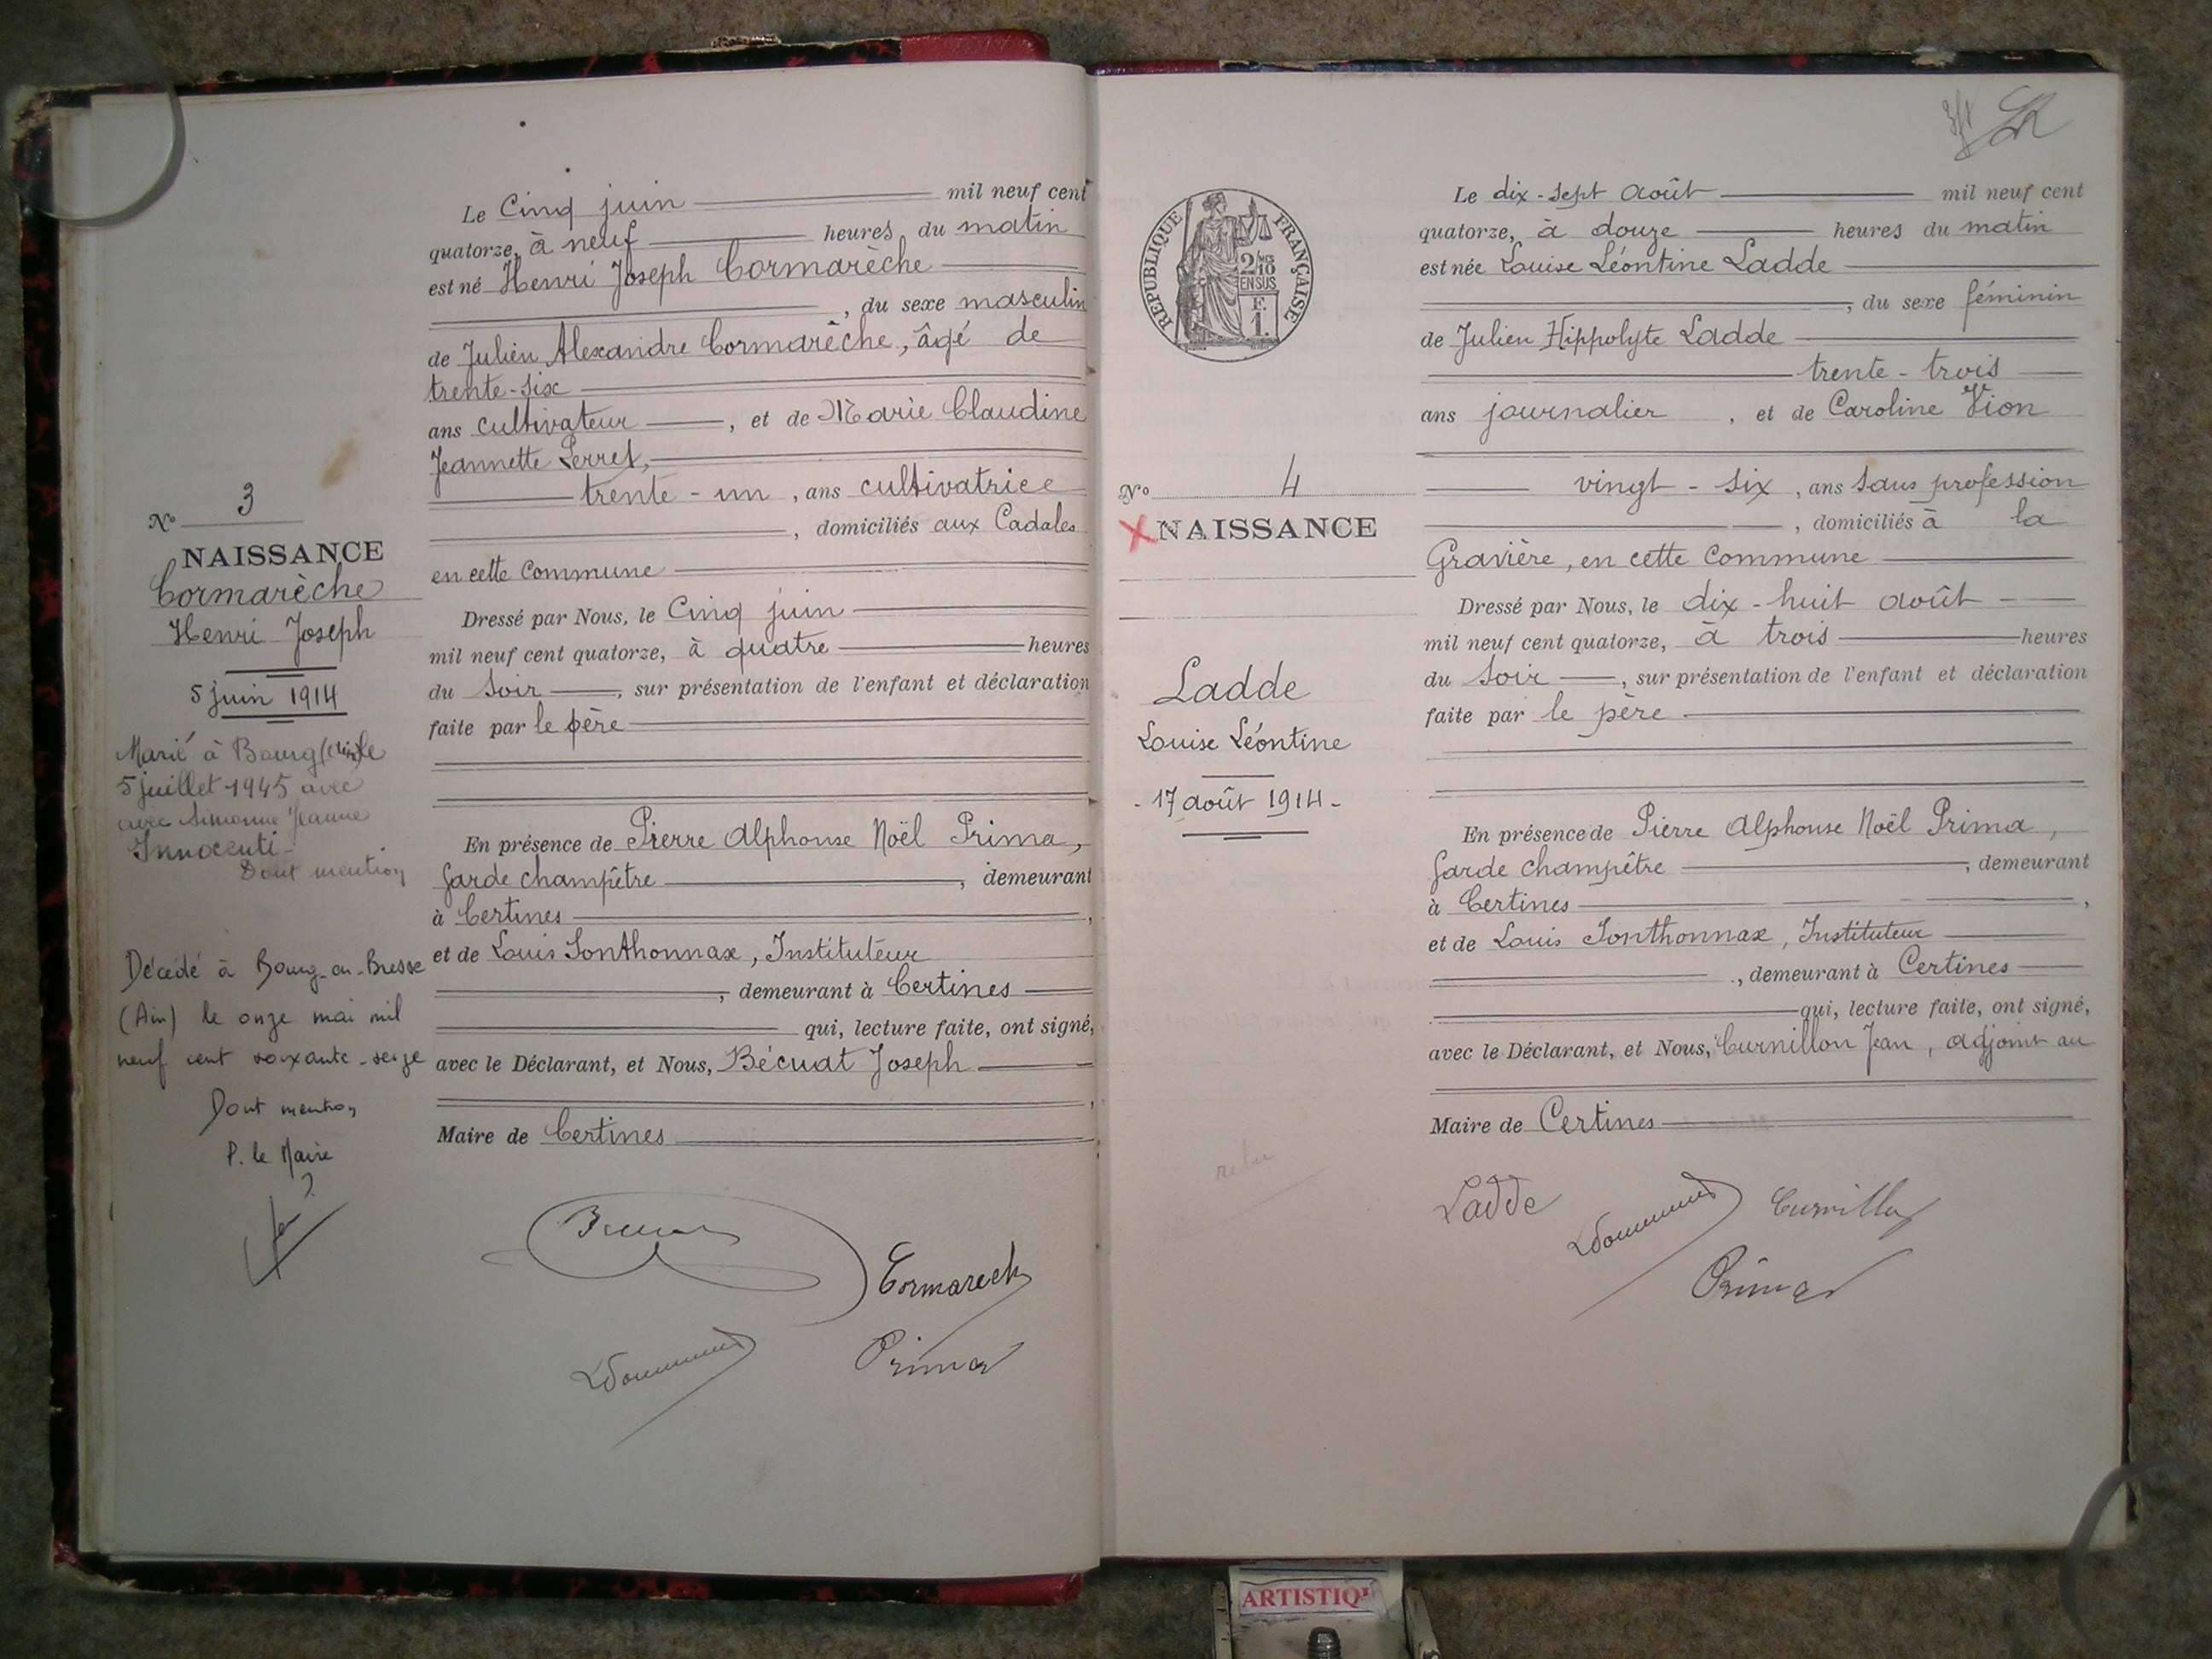 Le Cinq juin mil neuf cent
quatorze, à neuf heures du matin
est né Henri Joseph Cormarèche
, du sexe masculin
de Julien Alexandre Cormarèche, âgé de
trente-six
ans cultivateur , et de Marie Claudine
Jeannette Perret,
trente-un , ans cultivatrice
, domiciliés aux Cadales
en cette Commune
Dressé par Nous, le Cinq juin
mil neuf cent quatorze, à quatre heures
du Soir , sur présentation de l'enfant et déclaration
faite par le père
En présence de Pierre Alphonse Noël Prima,
Garde champêtre , demeurant
à Certines ,
et de Louis Sonthonnax, Instituteur
, demeurant à Certines
qui, lecture faite, ont signé,
avec le Déclarant, et Nous, Bécuat Joseph
,
Maire de Certines
Cormarech
Prima
No 3
NAISSANCE
Cormarèche
Henri Joseph
5 juin 1914
Marié à Bourg (Ain) le
5 juillet 1945 avec
avec Simonne Jeanne
Innocenti
Dont mention
Décédé à Bourg-en-Bresse
(Ain) le onze mai mil
neuf cent soixante-seize
Dont mention
P. le Maire
RÉPUBLIQUE FRANÇAISE
2/10
EN SUS
F.
1.
No 4
X NAISSANCE
Ladde
Louise Léontine
- 17 août 1914 -
relu
Le dix-sept Août mil neuf cent
quatorze, à douze heures du matin
est née Louise Léontine Ladde
, du sexe féminin
de Julien Hippolyte Ladde
trente-trois
ans journalier , et de Caroline Vion
vingt-six , ans Sans profession
, domiciliés à la
Gravière, en cette Commune
Dressé par Nous, le dix-huit août
mil neuf cent quatorze, à trois heures
du Soir , sur présentation de l'enfant et déclaration
faite par le père
En présence de Pierre Alphonse Noël Prima,
Garde champêtre , demeurant
à Certines ,
et de Louis Sonthonnax, Instituteur
, demeurant à Certines
qui, lecture faite, ont signé,
avec le Déclarant, et Nous, Curnillon Jean, adjoint au
Maire de Certines
Ladde
Prima
ARTISTIQ